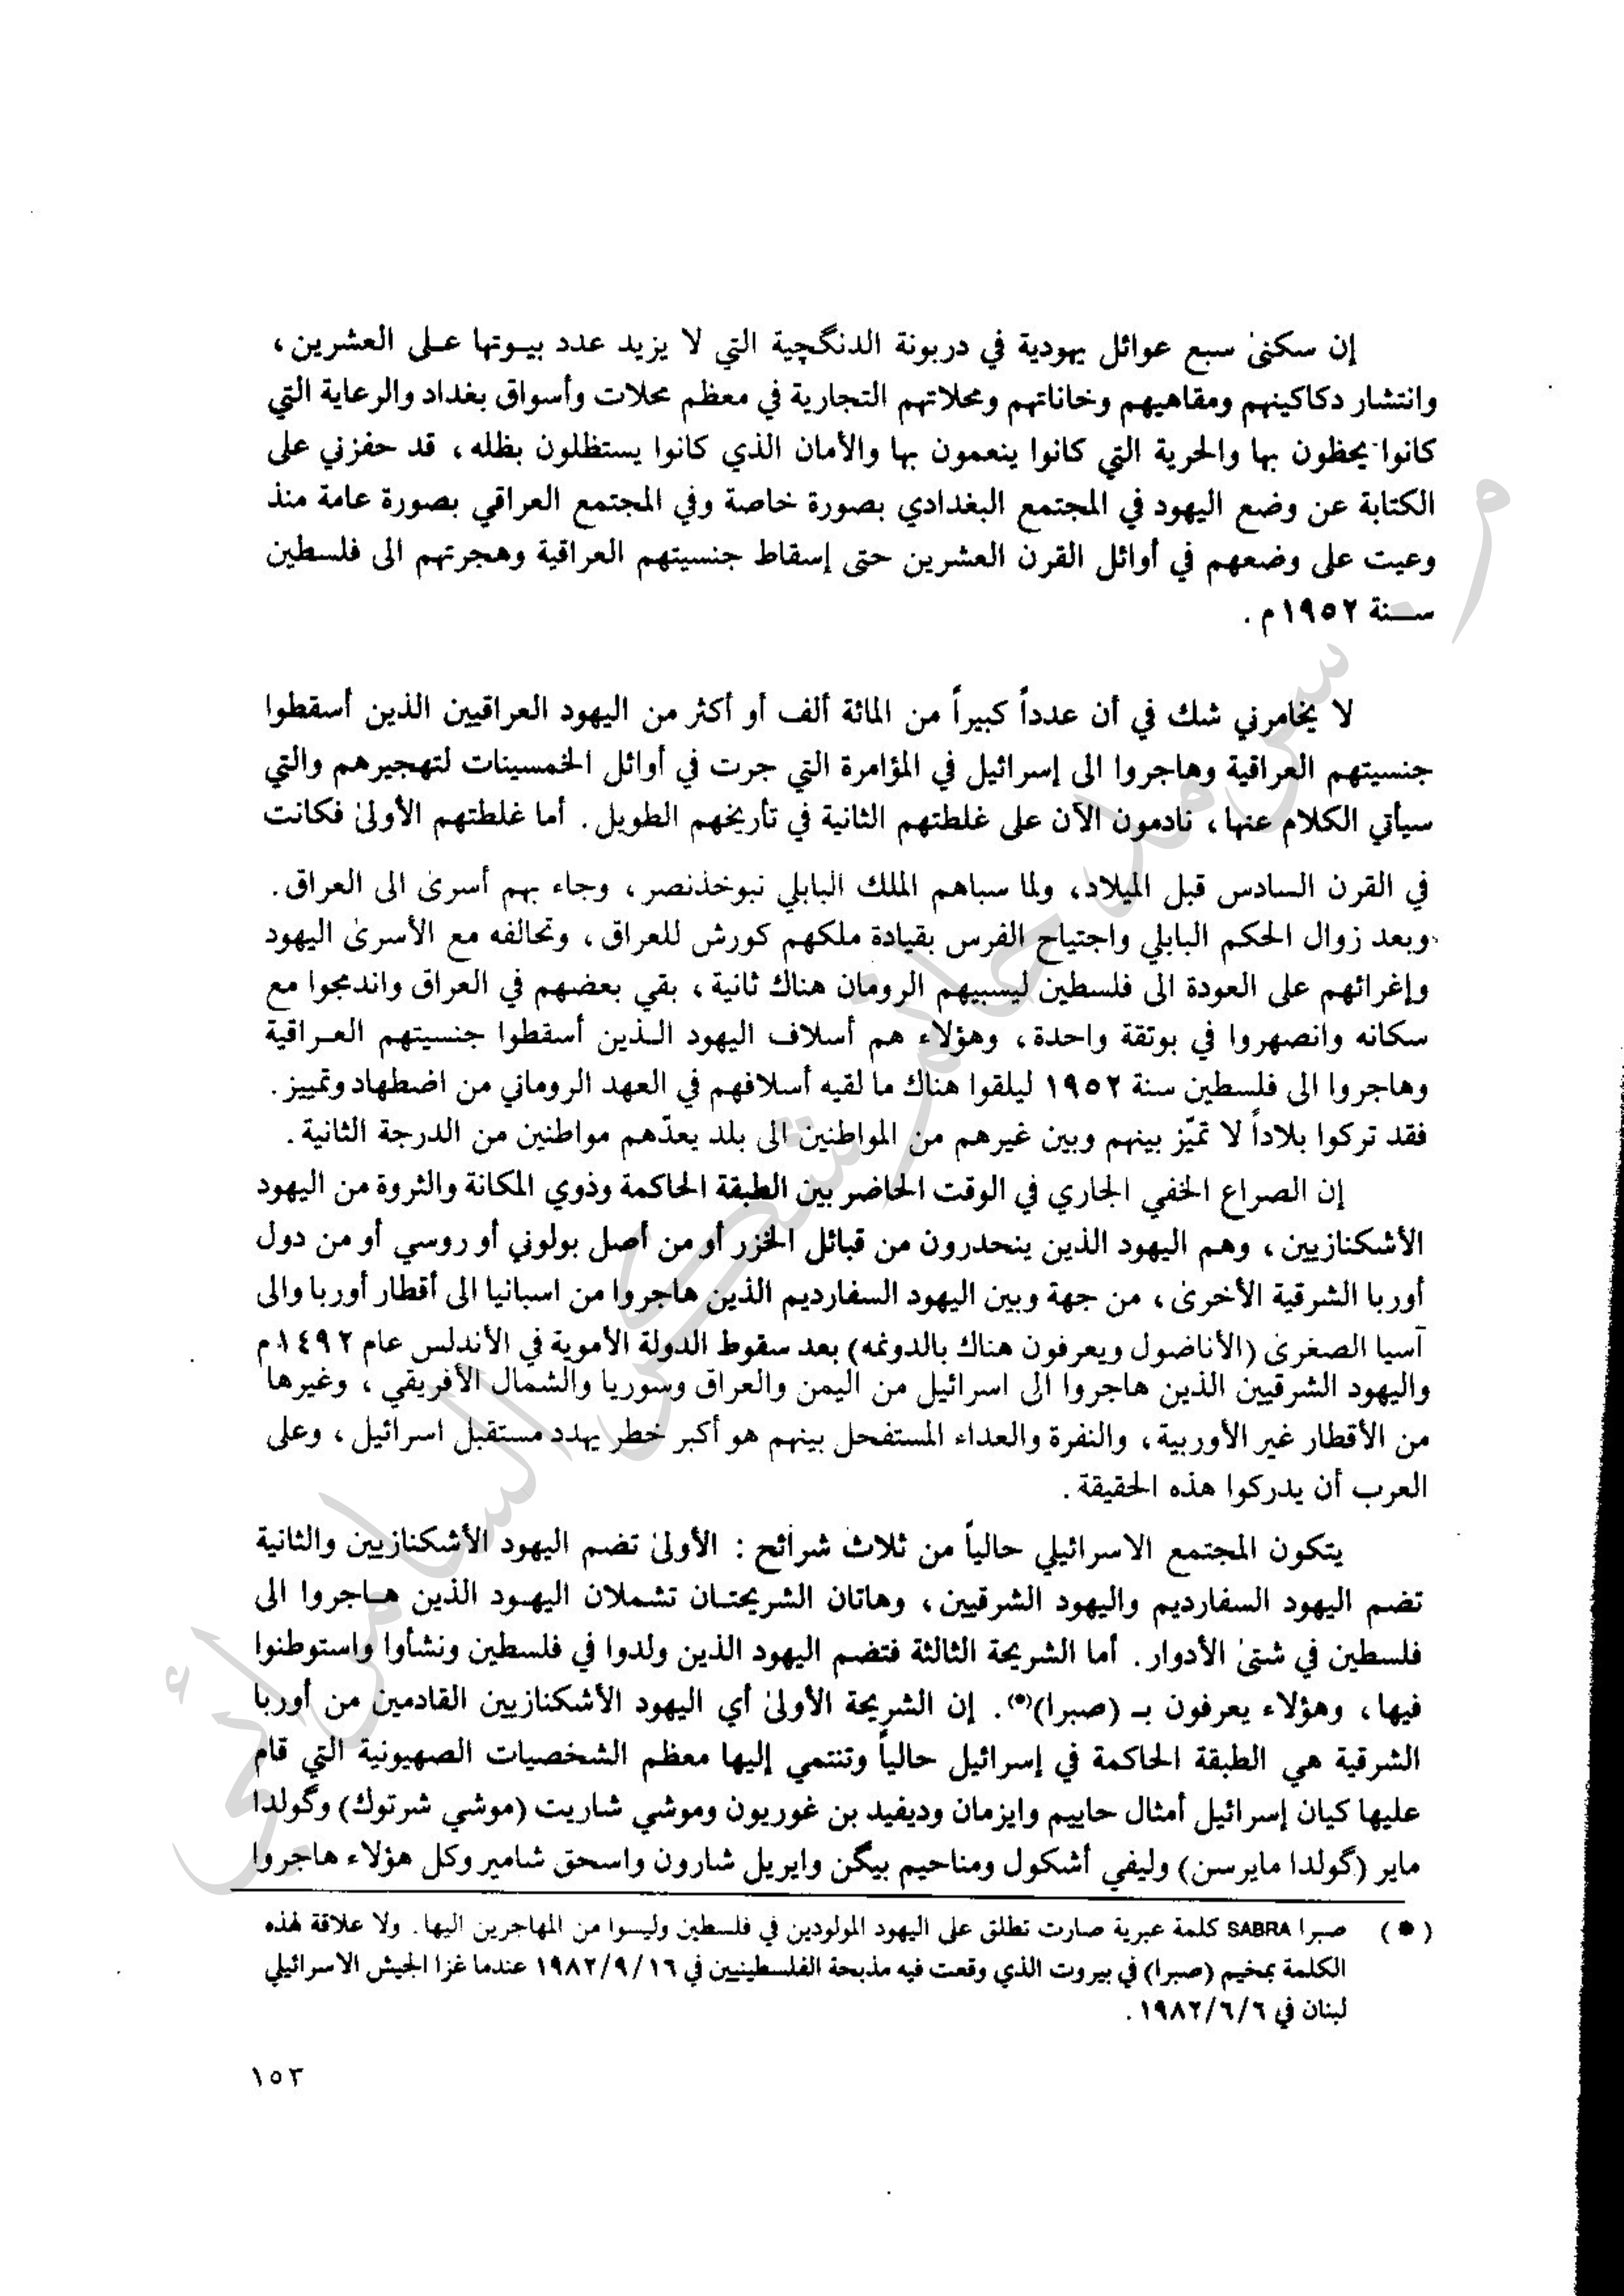 إن سكنىٰ سبع عوائل يهودية في دربونة الدنگچية التي لا يزيد عدد بيـوتها عـلى العشرين ،
وانتشار دكاكينهم ومقاهيهم وخاناتهم ومحلاتهم التجارية في معظم محلات وأسواق بغداد والرعاية التي
كانوا يحظون بها والحرية التي كانوا ينعمون بها والأمان الذي كانوا يستظلون بظله ، قد حفزني على
الكتابة عن وضع اليهود في المجتمع البغدادي بصورة خاصة وفي المجتمع العراقي بصورة عامة منذ
وعيت على وضعهم في أوائل القرن العشرين حتى إسقاط جنسيتهم العراقية وهجرتهم الى فلسطين
ســنة ١٩٥٢م .
لا يخامرني شك في أن عدداً كبيراً من المائة ألف أو أكثر من اليهود العراقيين الذين أسقطوا
جنسيتهم العراقية وهاجروا الى إسرائيل في المؤامرة التي جرت في أوائل الخمسينات لتهجيرهم والتي
سيأتي الكلام عنها ، نادمون الآن على غلطتهم الثانية في تأريخهم الطويل . أما غلطتهم الأولىٰ فكانت
في القرن السادس قبل الميلاد ، ولما سباهم الملك البابلي نبوخذنصر ، وجاء بهم أسرىٰ الى العراق .
وبعد زوال الحكم البابلي واجتياح الفرس بقيادة ملكهم كورش للعراق ، وتحالفه مع الأسرىٰ اليهود
وإغرائهم على العودة الى فلسطين ليسبيهم الرومان هناك ثانية ، بقي بعضهم في العراق واندمجوا مع
سكانه وانصهروا في بوتقة واحدة ، وهؤلاء هم أسلاف اليهود الـذين أسقطوا جنسيتهم العـراقية
وهاجروا الى فلسطين سنة ١٩٥٢ ليلقوا هناك ما لقيه أسلافهم في العهد الروماني من اضطهاد وتمييز .
فقد تركوا بلاداً لا تميّز بينهم وبين غيرهم من المواطنين الى بلد يعدّهم مواطنين من الدرجة الثانية .
إن الصراع الخفي الجاري في الوقت الحاضر بين الطبقة الحاكمة وذوي المكانة والثروة من اليهود
الأشكنازيين ، وهم اليهود الذين ينحدرون من قبائل الخزر أو من أصل بولوني أو روسي أو من دول
أوربا الشرقية الأخرىٰ ، من جهة وبين اليهود السفارديم الذين هاجروا من اسبانيا الى أقطار أوربا والى
آسيا الصغرىٰ (الأناضول ويعرفون هناك بالدونمه) بعد سقوط الدولة الأموية في الأندلس عام ١٤٩٢م
واليهود الشرقيين الذين هاجروا الى اسرائيل من اليمن والعراق وسوريا والشمال الأفريقي ، وغيرها
من الأقطار غير الأوربية ، والنفرة والعداء المستفحل بينهم هو أكبر خطر يهدد مستقبل اسرائيل ، وعلى
العرب أن يدركوا هذه الحقيقة .
يتكون المجتمع الاسرائيلي حالياً من ثلاث شرائح : الأولىٰ تضم اليهود الأشكنازيين والثانية
تضم اليهود السفارديم واليهود الشرقيين ، وهاتان الشريحتـان تشملان اليهـود الذين هـاجروا الى
فلسطين في شتىٰ الأدوار . أما الشريحة الثالثة فتضم اليهود الذين ولدوا في فلسطين ونشأوا واستوطنوا
فيها ، وهؤلاء يعرفون بـ (صبرا)(*) . إن الشريحة الأولىٰ أي اليهود الأشكنازيين القادمين من أوربا
الشرقية هي الطبقة الحاكمة في إسرائيل حالياً وتنتمي إليها معظم الشخصيات الصهيونية التي قام
عليها كيان إسرائيل أمثال حاييم وايزمان وديفيد بن غوريون وموشي شاريت (موشي شرتوك) وگولدا
ماير (گولدا مايرسن) وليفي أشكول ومناحيم بيگن وايريل شارون واسحق شامير وكل هؤلاء هاجروا
(*) صبرا SABRA كلمة عبرية صارت تطلق على اليهود المولودين في فلسطين وليسوا من المهاجرين اليها . ولا علاقة لهذه
الكلمة بمخيم (صبرا) في بيروت الذي وقعت فيه مذبحة الفلسطينيين في ١٩٨٢/٩/١٦ عندما غزا الجيش الاسرائيلي
لبنان في ١٩٨٢/٦/٦ .
١٥٣